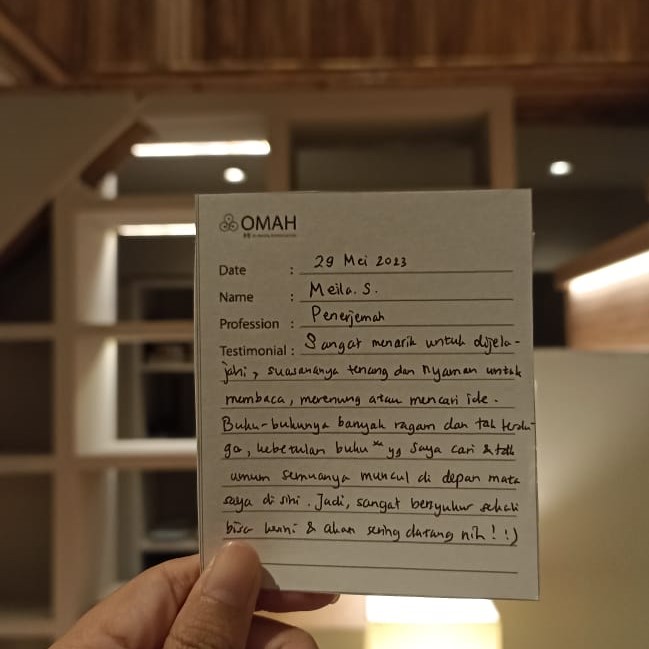 OMAH
Date : 29 Mei 2023
Name : Meila. S.
Profession : Penerjemah
Testimonial : Sangat menarik untuk dijela-
jahi, suasananya tenang dan nyaman untuk
membaca, merenung atau mencari ide.
Buku-bukunya banyak ragam dan tak terdu-
ga, kebetulan buku² yg saya cari &
umum semuanya muncul di depan mata
saya di sini. Jadi, sangat bersyukur sekali
bisa & akan sering datang nih! :)